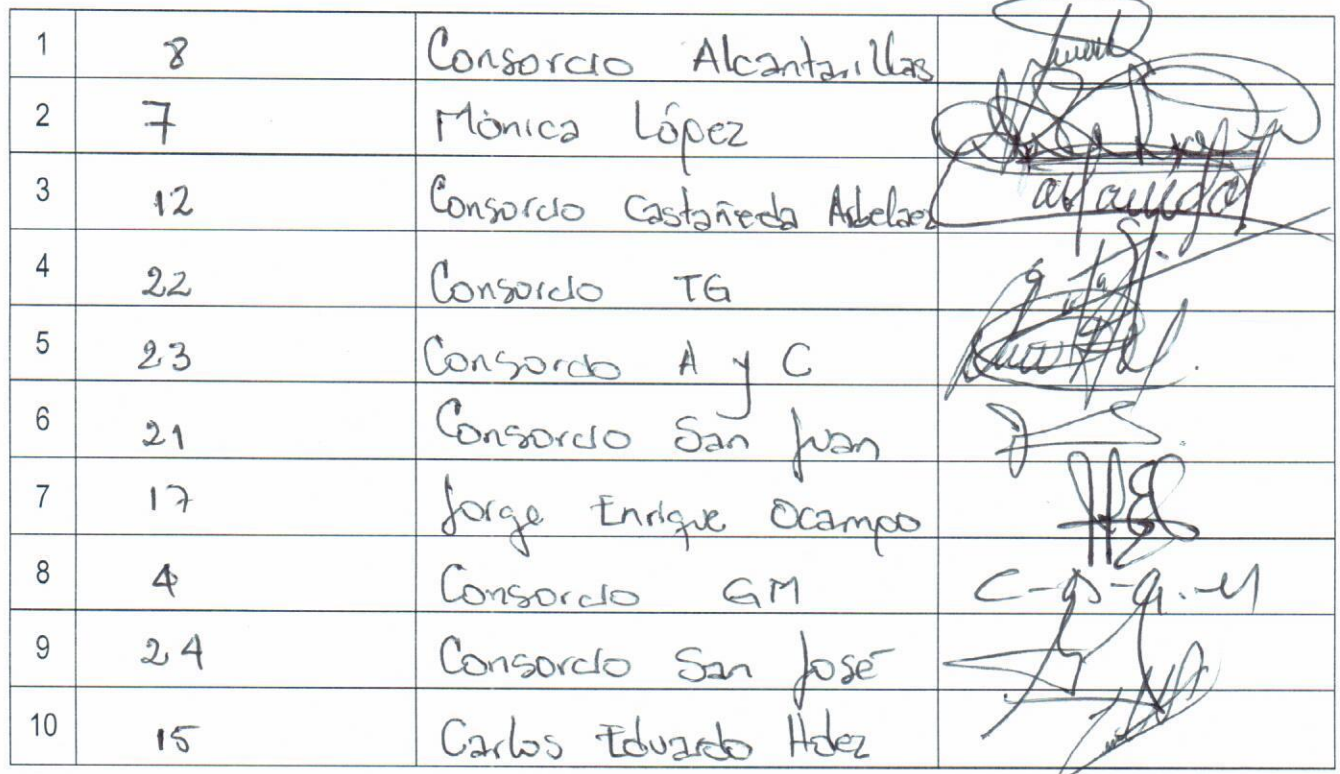 1 8 Consorcio Alcantarillas
2 7 Mónica López
3 12 Consorcio Castañeda Arbelaez
4 22 Consorcio TG
5 23 Consorcio A y C
6 21 Consorcio San Juan
7 17 Jorge Enrique Ocampo
8 4 Consorcio GM C-O-G.-M
9 24 Consorcio San José
10 15 Carlos Eduardo Hdez